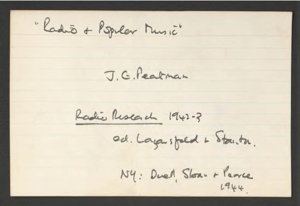 "Radio + Popular Music"
J. G. Peatman
Radio Research 1942-3
ed. Lazarsfeld + Stanton.
NY: Duell, Sloan + Pearce
1944.